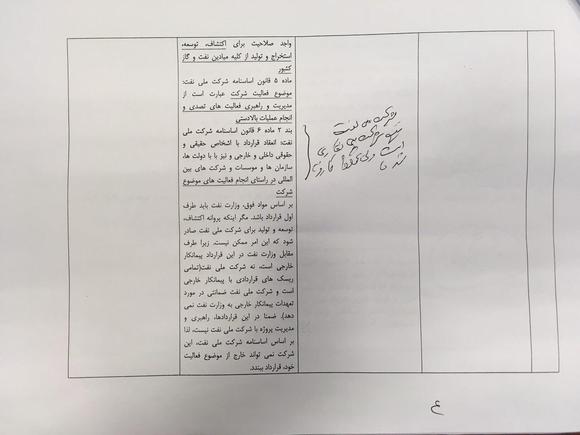 واجد صلاحیت برای اکتشاف، توسعه،
استخراج و تولید از کلیه میادین نفت و گاز
کشور
ماده ۵ قانون اساسنامه شرکت ملی نفت:
موضوع فعالیت شرکت عبارت است از
مدیریت و راهبری فعالیت های تصدی و
انجام عملیات بالادستی
بند ۲ ماده ۶ قانون اساسنامه شرکت ملی
نفت: انعقاد قرارداد با اشخاص حقیقی و
حقوقی داخلی و خارجی و نیز با دولت ها،
سازمان ها و موسسات و شرکت های بین
المللی در راستای انجام فعالیت های موضوع
شرکت
بر اساس مواد فوق، وزارت نفت باید طرف
اول قرارداد باشد. مگر اینکه پروانه اکتشاف،
توسعه و تولید برای شرکت ملی نفت صادر
شود که این امر ممکن نیست. زیرا طرف
مقابل وزارت نفت در این قرارداد پیمانکار
خارجی است، نه شرکت ملی نفت(تمامی
ریسک های قراردادی با پیمانکار خارجی
است و شرکت ملی نفت ضمانتی در مورد
تعهدات پیمانکار خارجی به وزارت نفت نمی
دهد). ضمنا در این قراردادها، راهبری و
مدیریت پروژه با شرکت ملی نفت نیست، لذا
بر اساس اساسنامه شرکت ملی نفت، این
شرکت نمی تواند خارج از موضوع فعالیت
خود، قرارداد ببندد.
شرکت ملی نفت
است ولی
۴